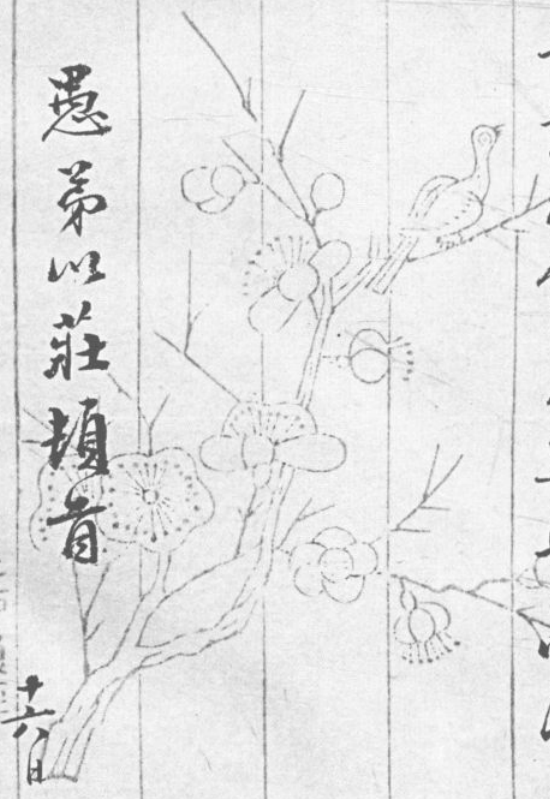 愚弟以莊頓首
十六日